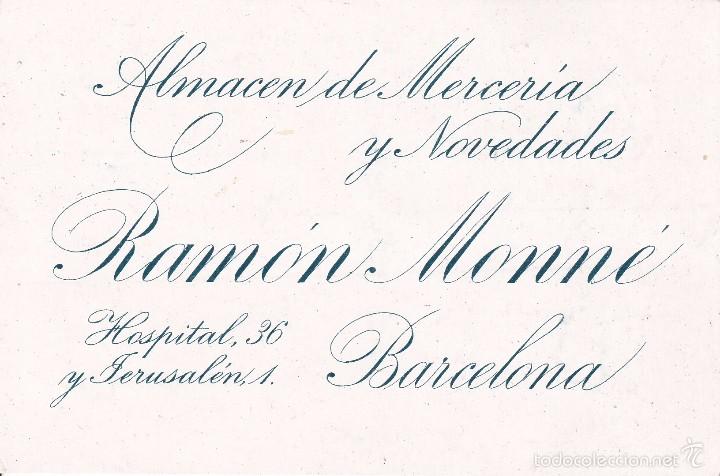 Almacen de Mercería
y Novedades
Ramón Monné
Hospital, 36
y Jerusalén, 1.
Barcelona
todocoleccion.net